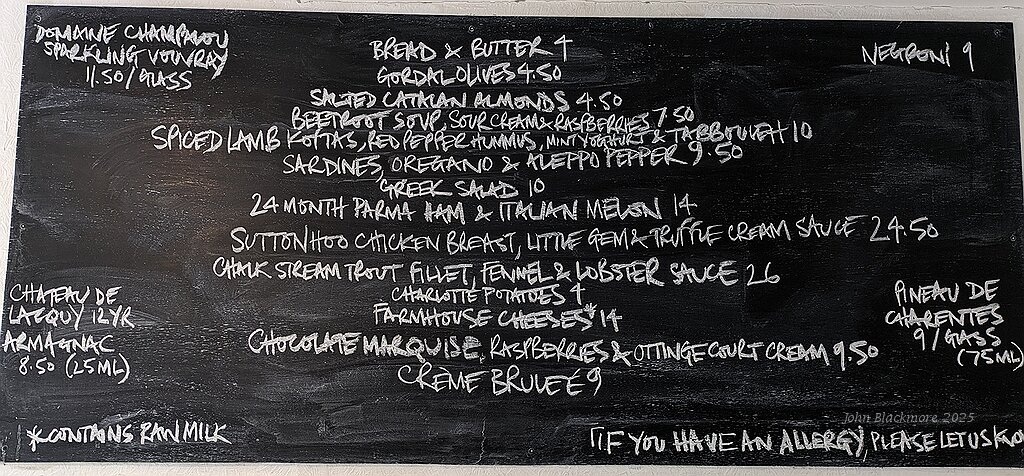 DOMAINE CHAMPALOU
SPARKLING VOUVRAY
11.50/GLASS
BREAD & BUTTER 4
GORDAL OLIVES 4.50
SALTED CATALAN ALMONDS 4.50
BEETROOT SOUP, SOUR CREAM & RASPBERRIES 7.50
SPICED LAMB KOFTAS, RED PEPPER HUMMUS, MINT YOGHURT & TABBOULEH 10
SARDINES, OREGANO & ALEPPO PEPPER 9.50
GREEK SALAD 10
24 MONTH PARMA HAM & ITALIAN MELON 14
SUTTON HOO CHICKEN BREAST, LITTLE GEM & TRUFFLE CREAM SAUCE 24.50
CHALK STREAM TROUT FILLET, FENNEL & LOBSTER SAUCE 26
CHARLOTTE POTATOES 4
FARMHOUSE CHEESES* 14
CHOCOLATE MARQUISE, RASPBERRIES & OTTINGE COURT CREAM 9.50
CRÈME BRULEÉ 9
NEGRONI 9
CHATEAU DE
LACQUY 12YR
ARMAGNAC
8.50 (25ML)
PINEAU DE
CHARENTES
9/GLASS
(75ML)
*CONTAINS RAW MILK
IF YOU HAVE AN ALLERGY, PLEASE LET US KNO
John Blackmore 2025